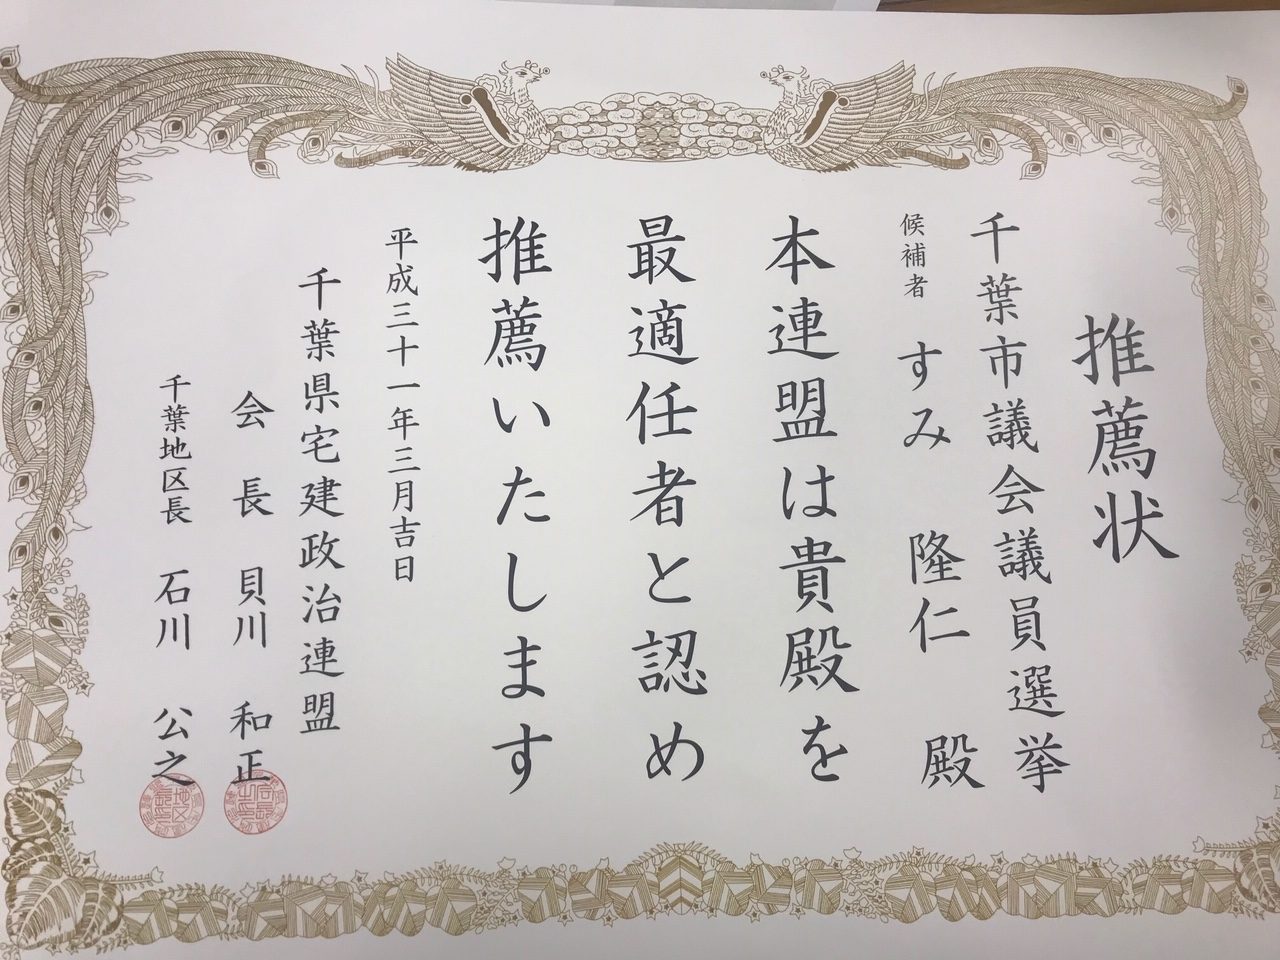 推薦状
千葉市議会議員選挙
候補者 すみ 隆仁 殿
本連盟は貴殿を
最適任者と認め
推薦いたします
平成三十一年三月吉日
千葉県宅建政治連盟
会長 貝川 和正
千葉地区長 石川 公之